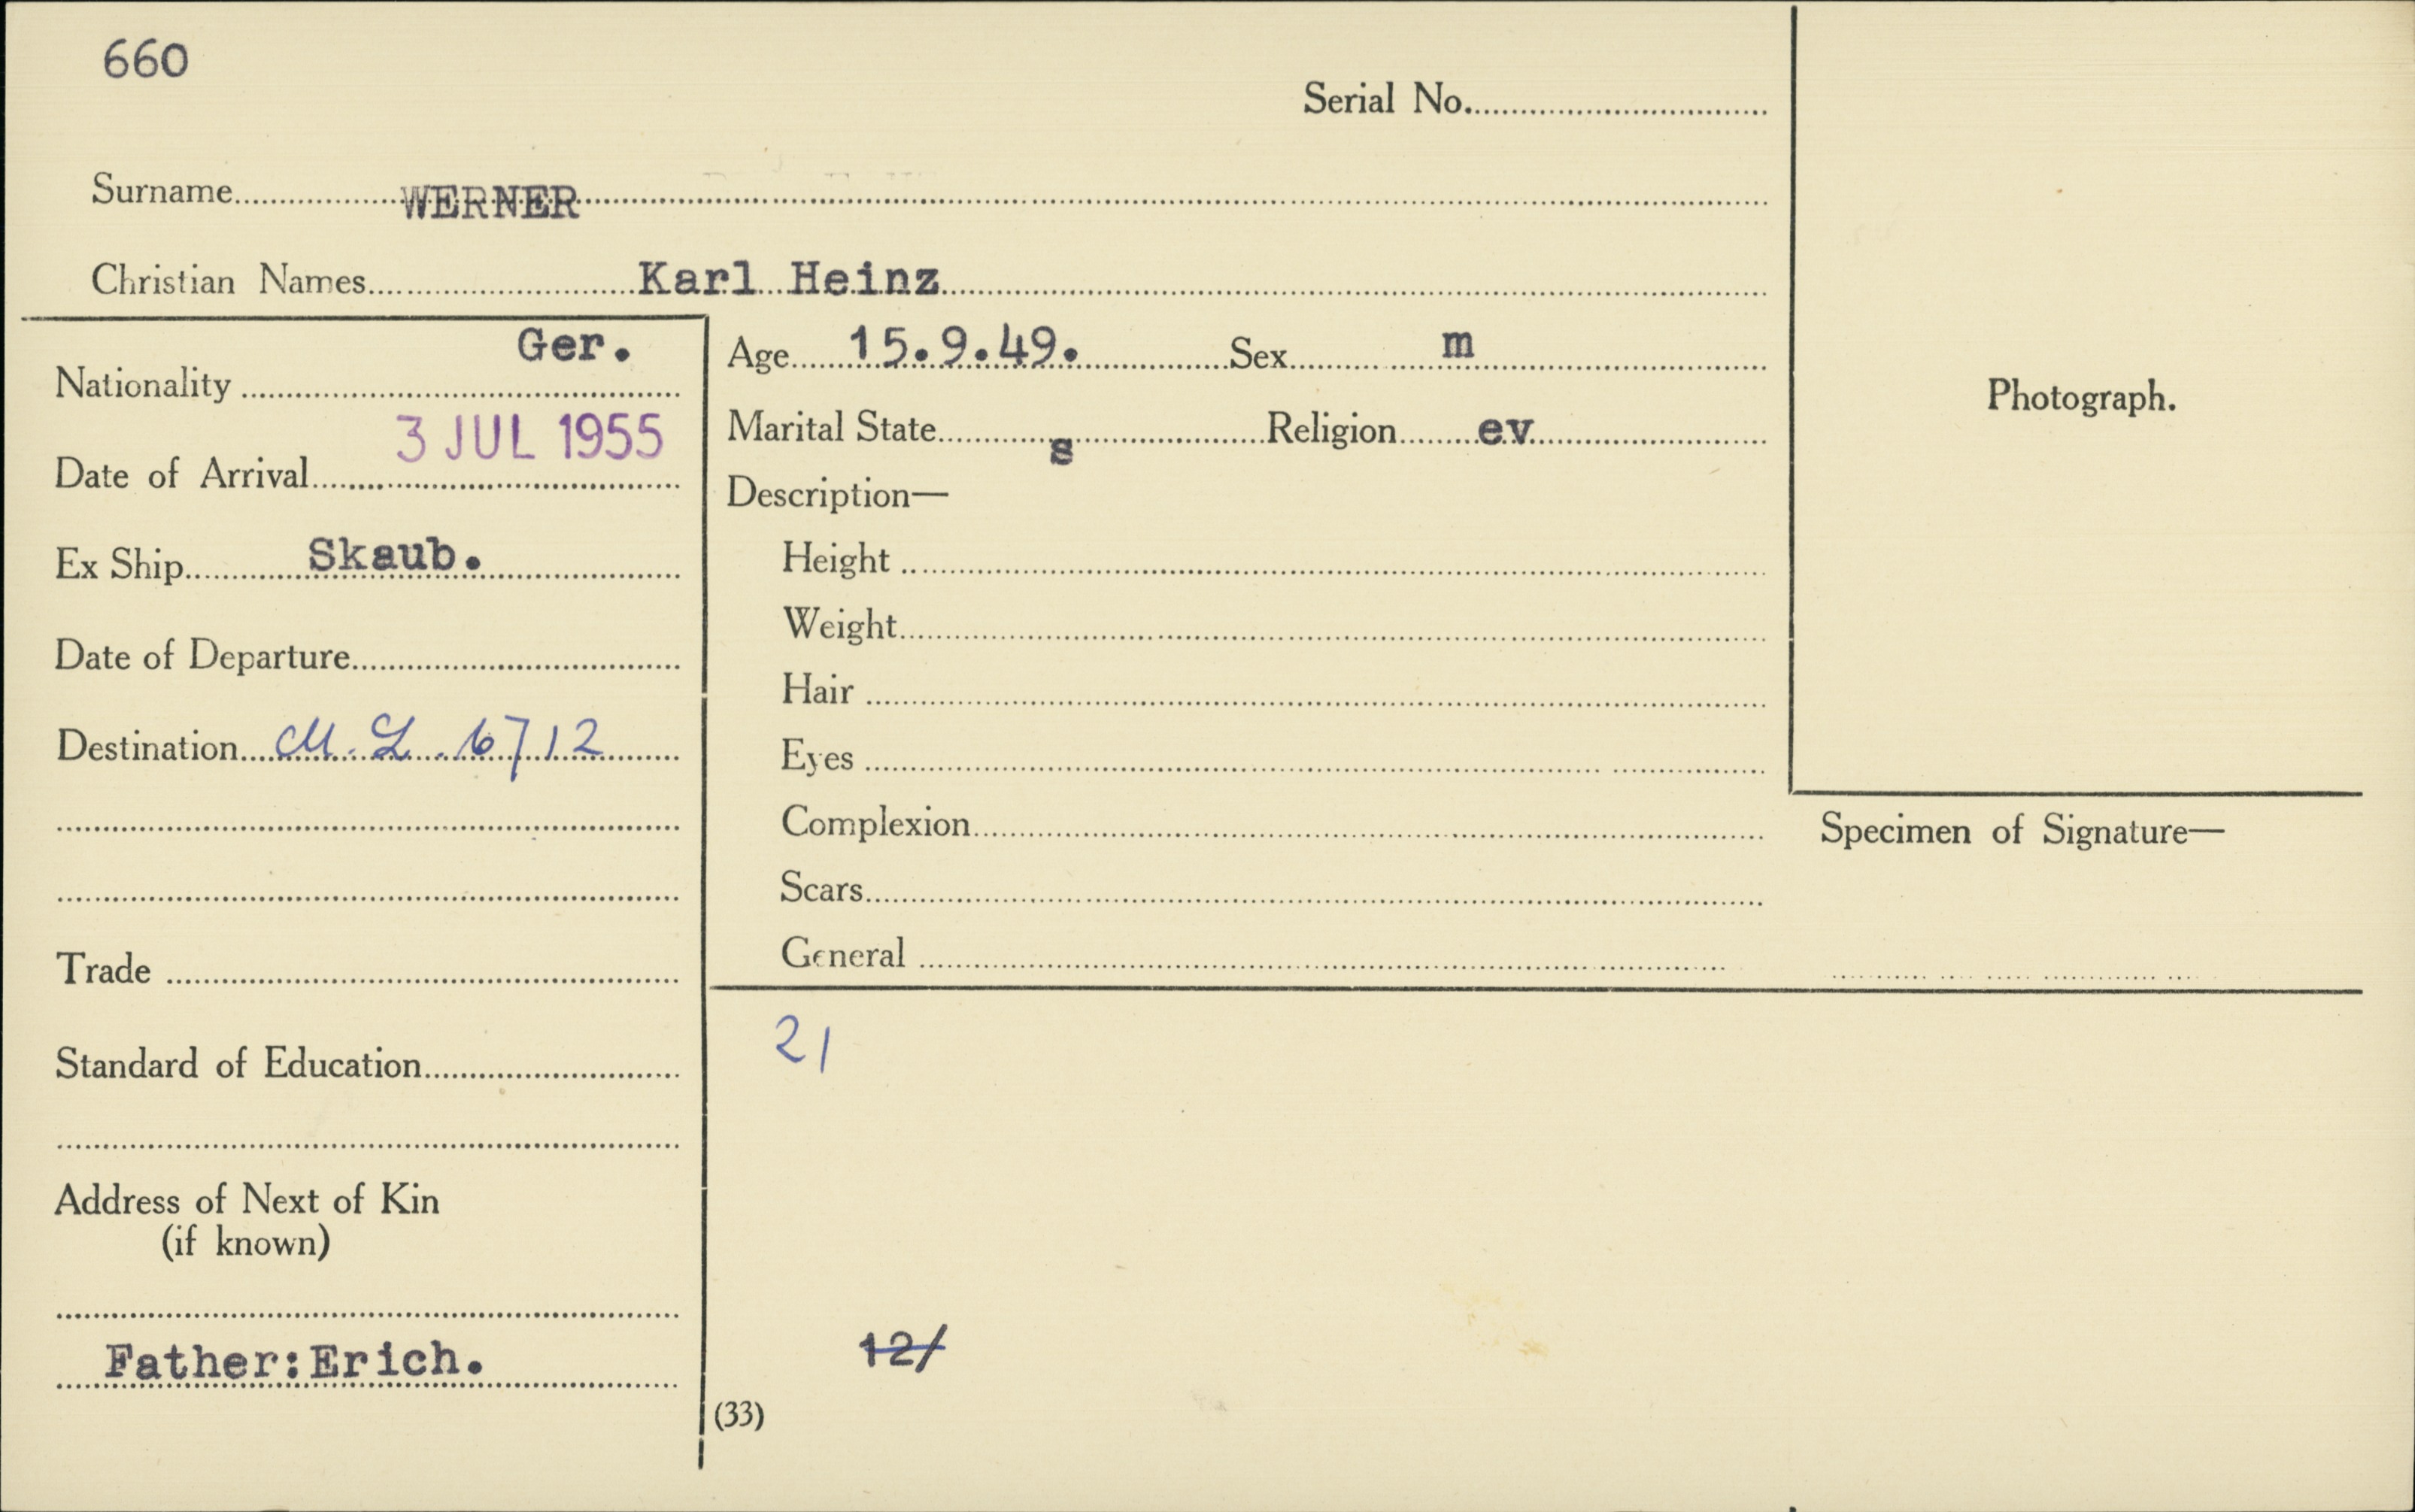 660
Serial No.
Surname WERNER
Christian Names Karl Heinz
Ger.
Nationality
3 JUL 1955
Date of Arrival
Ex Ship Skaub.
Date of Departure
Destination M. L. 6712
Trade
Standard of Education
Address of Next of Kin
(if known)
Father:Erich.
Age 15.9.49. Sex m
Marital State s Religion ev
Description—
Height
Weight
Hair
Eyes
Complexion
Scars
General
Photograph.
Specimen of Signature—
21
12/
(33)